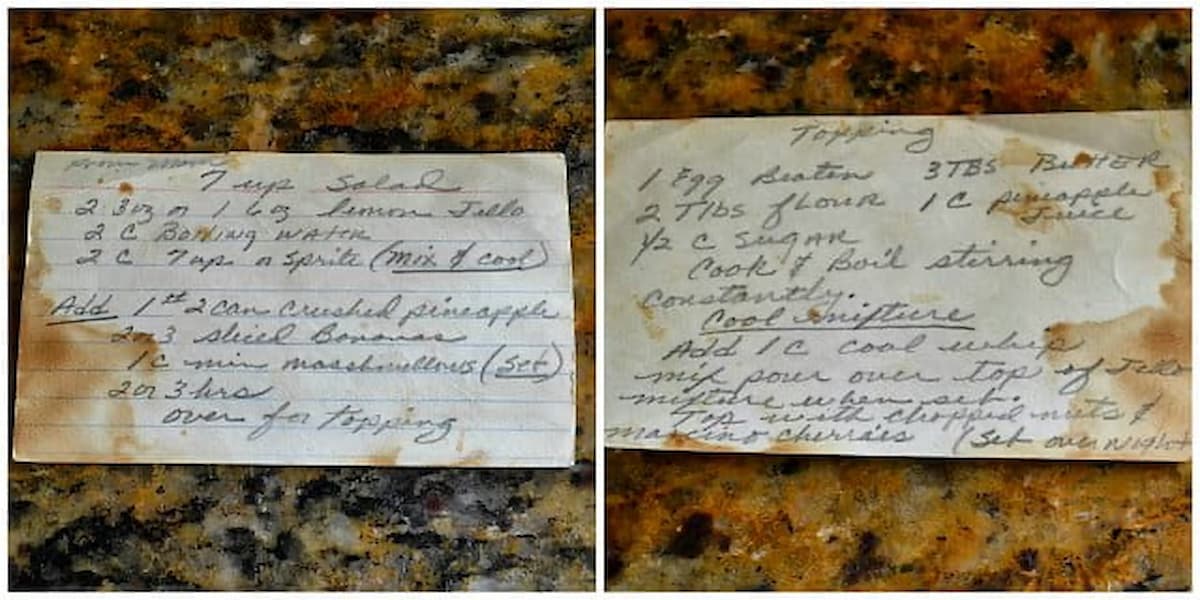 From Mom
7 up Salad
2 3oz or 1 6oz lemon Jello
2 C Boiling WATER
2 C 7up or Sprite (Mix & cool)
Add 1 #2 can crushed pineapple
2 or 3 sliced Bananas
1C min marshmellows (Set)
2 or 3 hrs
over for topping
Topping
1 Egg Beaten 3 TBS BUTTER
2 Tlbs flour 1 C pineapple
Juice
1/2 C SUGAR
Cook & Boil stirring
constantly.
Cool mixture
Add 1 C cool whip
mix pour over top of Jello
mixture when set.
Top with chopped nuts &
marcino cherries (Set over night